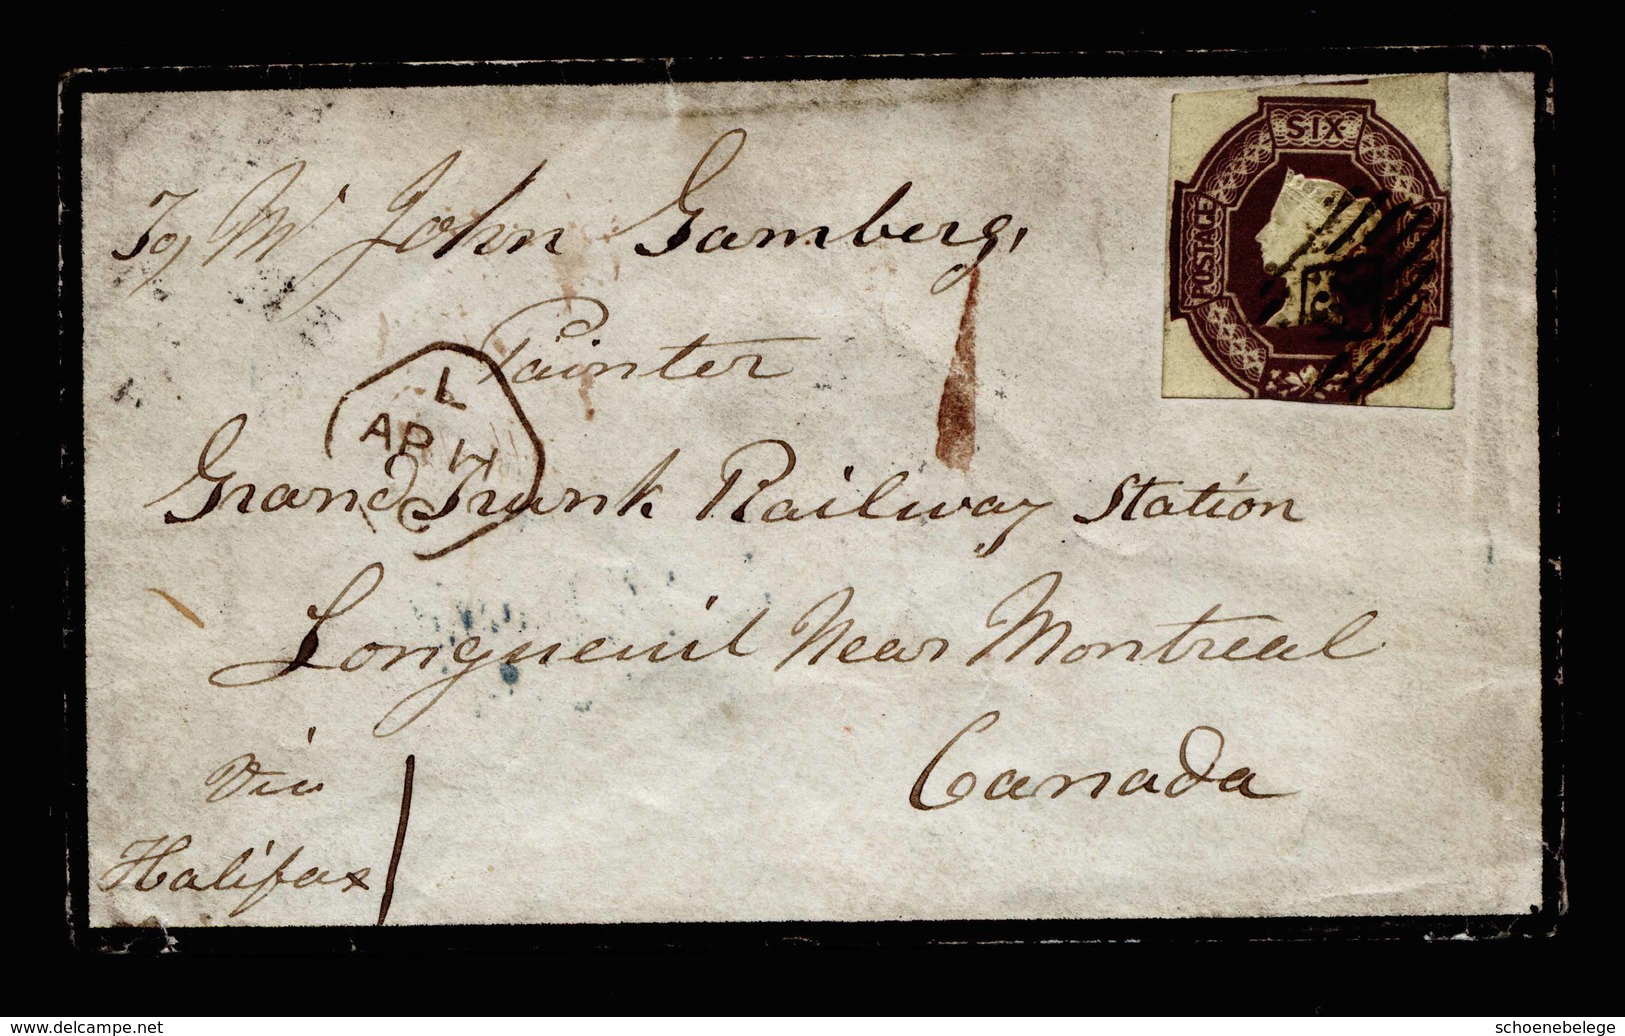 To, Mr John Gamberg,
SIX
POSTAGE
Painter
L
AP 14
Grand Trunk Railway Station
Longueuil Near Montreal
Canada
Via
Halifax
www.delcampe.net
schoenebelege